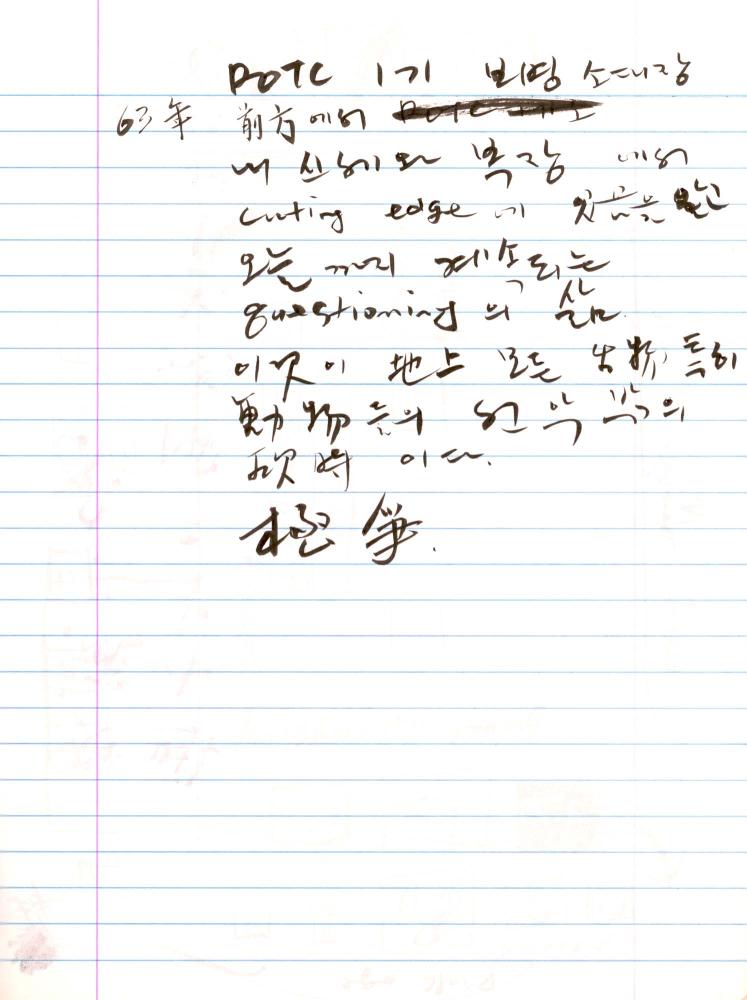 ROTC 1기 보병 소대장
63年 前方에서
내 신체와 복장 에서
cutting edge에
오늘 까지 계속되는
questioning의 삶.
이것이 地上 모든 生物, 특히
動物들의
이다.